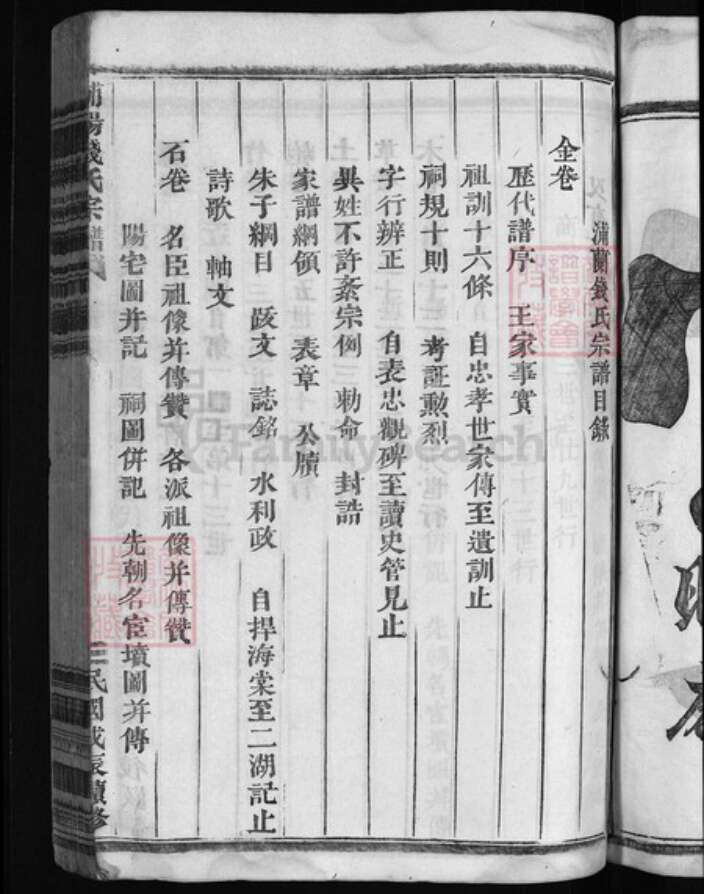 浦蘭錢氏宗譜目錄
金卷
歷代譜序　王家事實
祖訓十六條　自忠孝世家傳至遺訓止
祠規十則　考証勲烈
字行辨正　自表忠觀碑至讀史管見止
異姓不許紊宗例　勅命　封誥
家譜綱領　表章　公牘
朱子綱目　跋文　誌銘　水利政　自捍海棠至二湖記止
詩歌　軸文
石卷　名臣祖像并傳贊　各派祖像并傳贊
陽宅圖并記　祠圖併記　先朝名宦墳圖并傳
浦陽錢氏宗譜
民國戊辰續修
FamilySearch